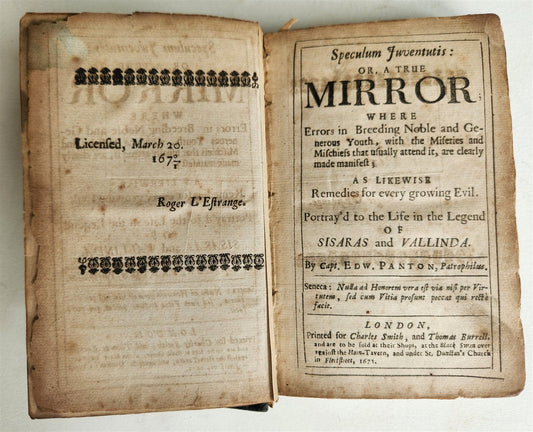 Licensed, March 20.
167 0/1
Roger L'Estrange.
Speculum Juventutis:
OR, A TRUE
MIRROR;
WHERE
Errors in Breeding Noble and Ge-
nerous Youth, with the Miseries and
Mischiefs that usually attend it, are clearly
made manifest;
AS LIKEWISE
Remedies for every growing Evil.
Portray'd to the Life in the Legend
OF
SISARAS and VALLINDA.
By Capt. EDW. PANTON, Patrophilus.
Seneca: Nulla ad Honorem vera est via nisi per Vir-
tutem, sed cum Vitia prosunt peccat qui rectè
facit.
LONDON,
Printed for Charles Smith, and Thomas Burrell.
and are to be sold at their Shops, at the Black Swan over
against the Hain-Tavern, and under St. Dunstan's Church
in Fleetstreet, 1671.